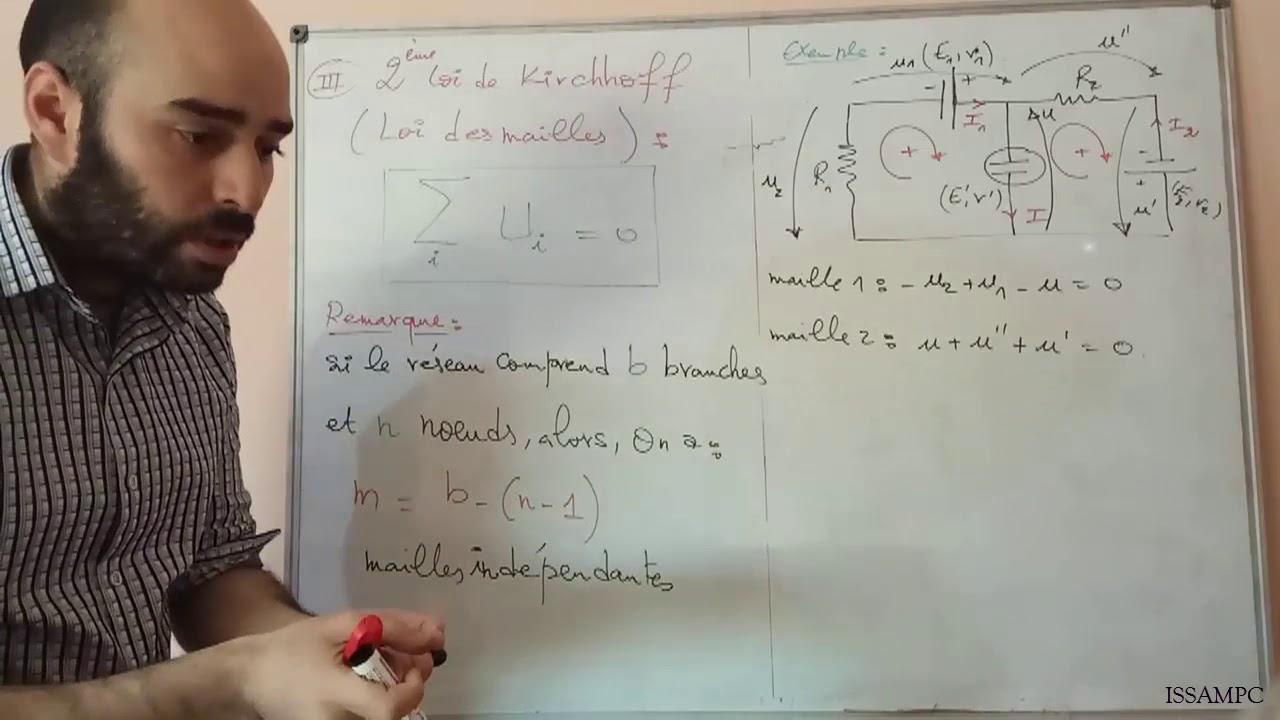 III 2ème loi de Kirchhoff
(Loi des mailles) :
Σ Ui = 0
i
Remarque :
si le réseau comprend b branches
et n noeuds, alors, On a :
m = b - (n - 1)
mailles indépendantes
Exemple : u1 (E1, r1) u''
- + R2
I1 Δu I2
+ + -
u2 R1 (E', r') I + u' (E2, r2)
maille 1 : - u2 + u1 - u = 0
maille 2 : u + u'' + u' = 0
ISSAMPC